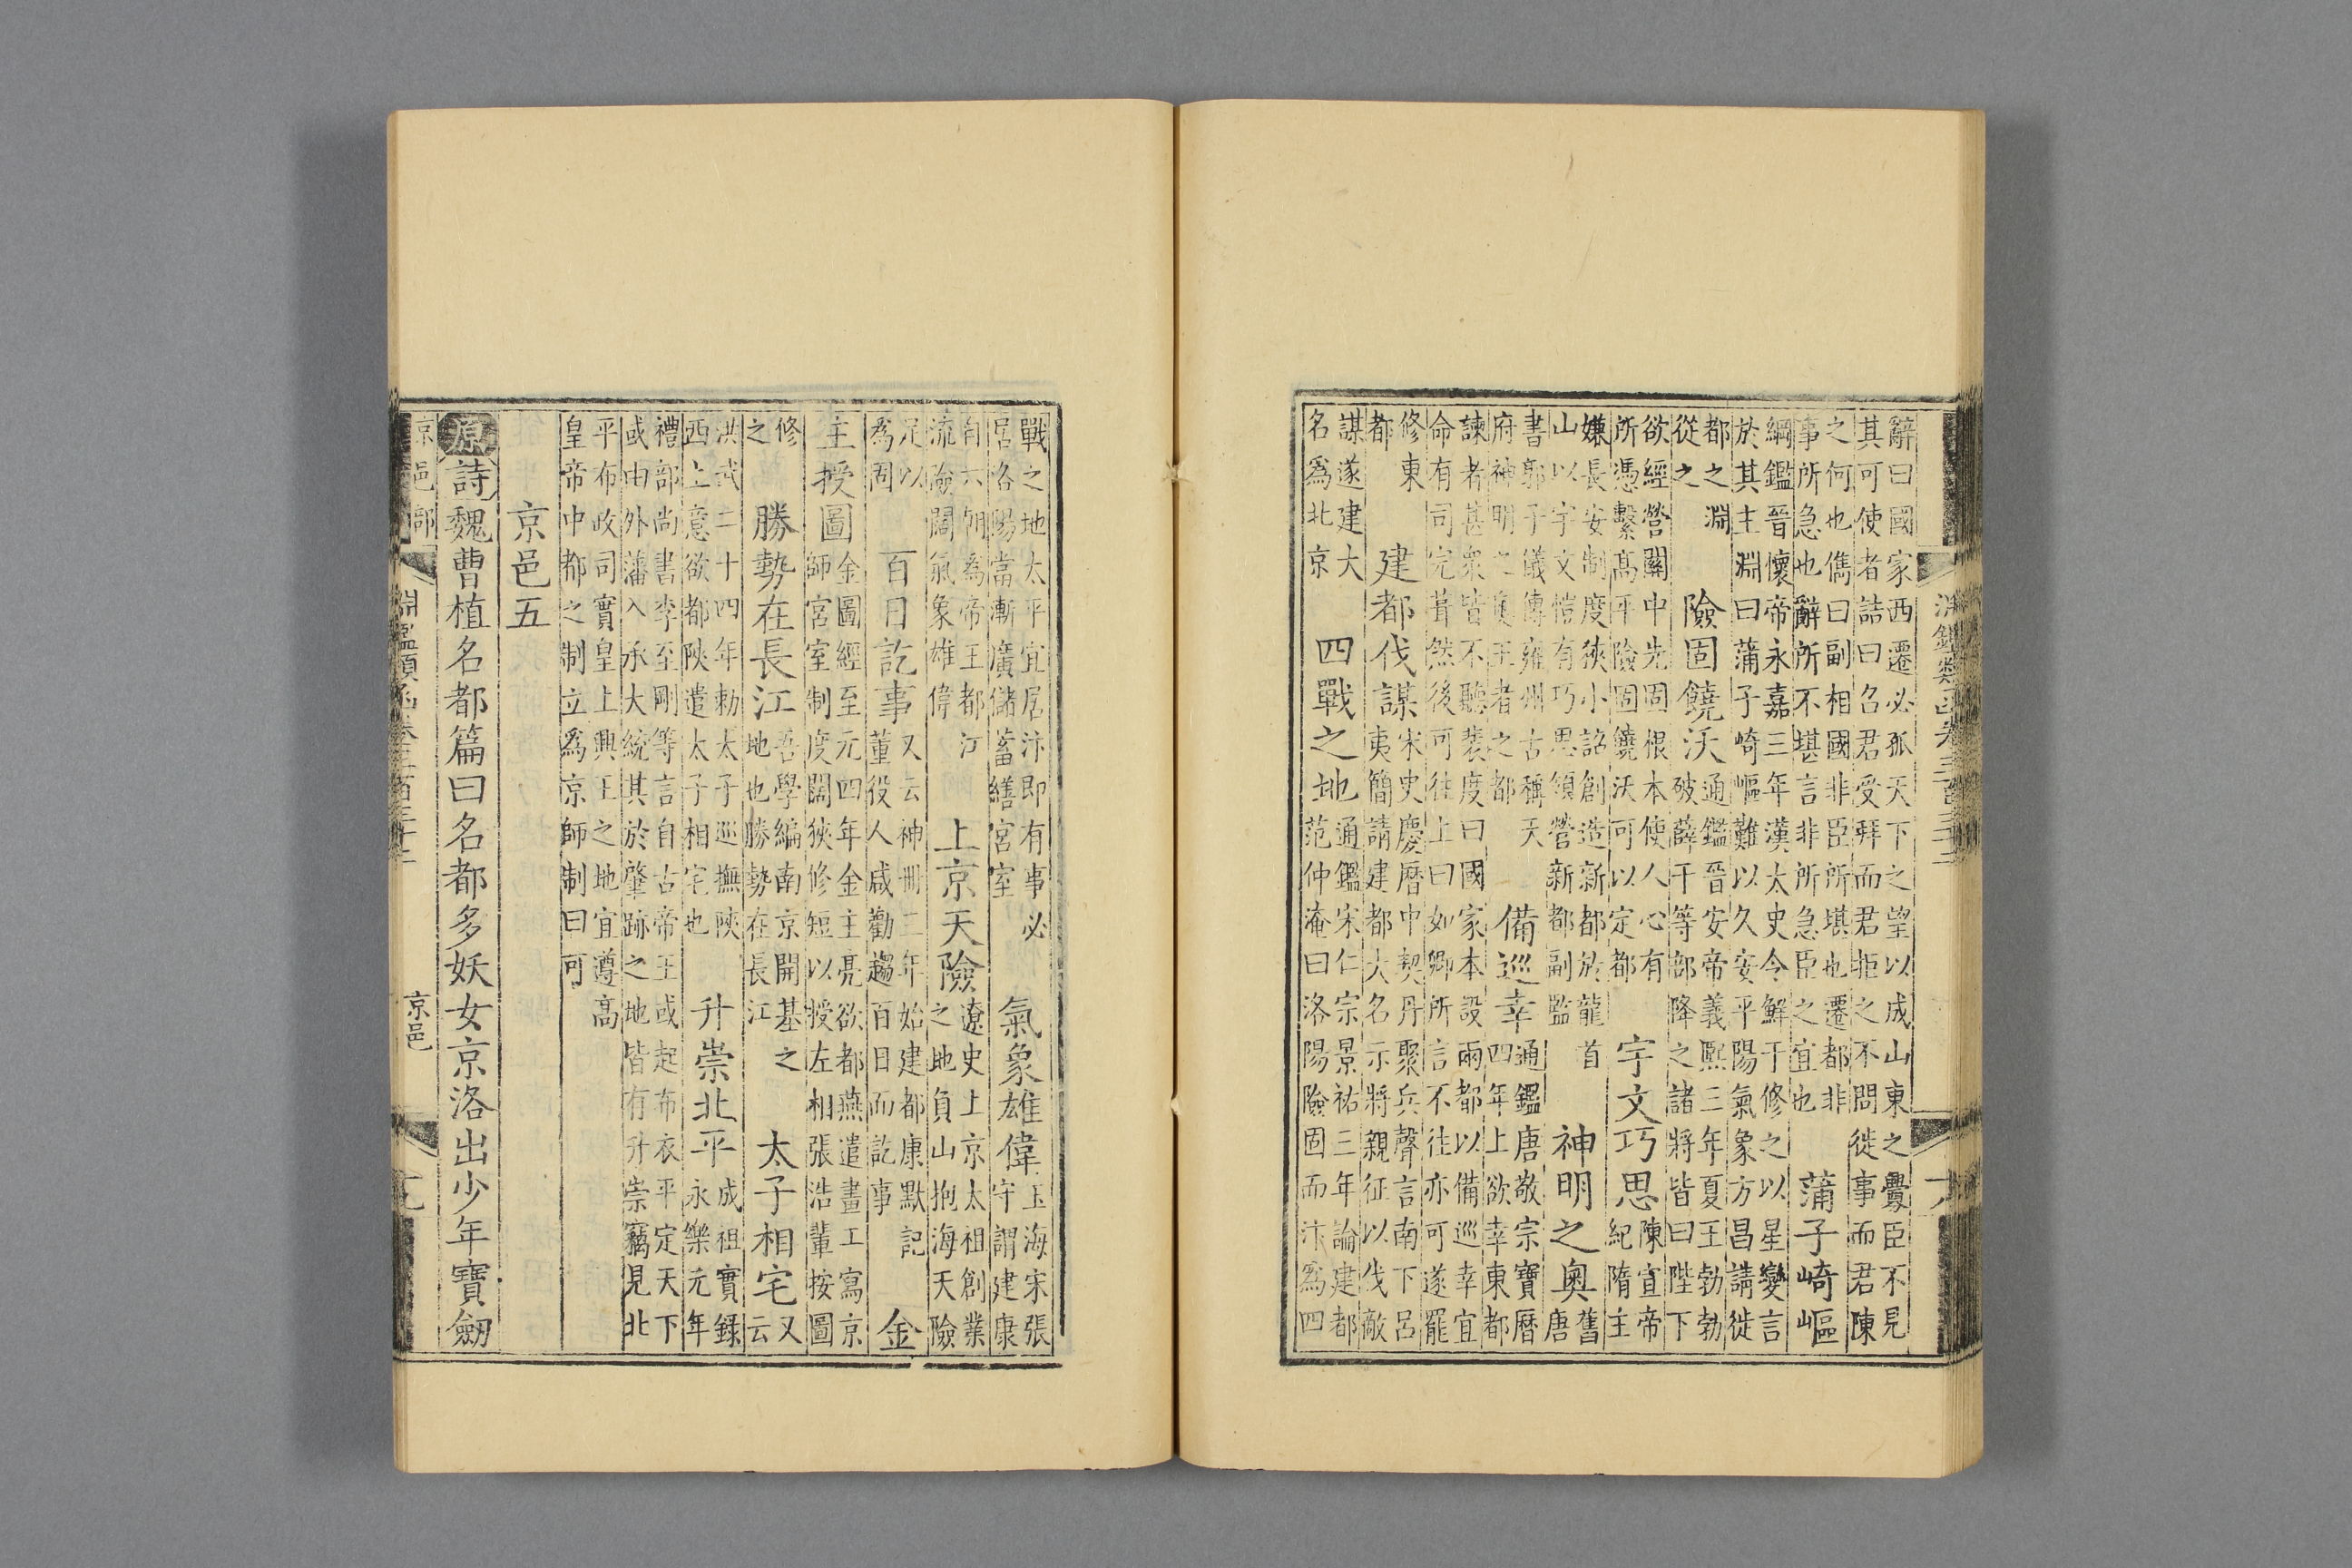 淵鑑類函卷三百三十二
辭曰國家西遷必孤天下之望以成山東之釁臣不見
其可使者詰曰召君受拜而君拒之不問徙事而君陳
之何也儁曰副相國非臣所堪也遷都非
事所急也辭所不堪言非所急臣之宜也
蒲子崎嶇
綱鑑晉懷帝永嘉三年漢太史令鮮于修之以星變言
於其主淵曰蒲子崎嶇難以久安平陽氣象方昌請徙
都之淵
從之
險固饒沃
通鑑晉安帝義熙三年夏王勃勃
破薛干等部降之諸將皆曰陛下
欲經營關中先固根本使人心有
所憑繫高平險固饒沃可以定都
宇文巧思
陳宣帝
紀隋主
嫌長安制度狹小詔創造新都於龍首
山以宇文愷有巧思領營新都副監
神明之奧
舊
唐
書郭子儀傳雍州古稱天
府神明之奧王者之都
備巡幸
通鑑唐敬宗寶曆
四年上欲幸東都
諫者甚衆皆不聽裴度曰國家本設兩都以備巡幸宜
命有司完葺然後可往上曰如卿所言不往亦可遂罷
修東
都
建都伐謀
宋史慶曆中契丹聚兵聲言南下呂
夷簡請建都大名示將親征以伐敵
謀遂建大
名爲北京
四戰之地
通鑑宋仁宗景祐三年論建都
范仲淹曰洛陽險固而汴爲四
戰之地太平宜居汴即有事必
居洛陽當漸廣儲蓄繕宮室
氣象雄偉
玉海宋張
守謂建康
自六朝為帝王都江
流險闊氣象雄偉
上京天險
遼史上京太祖創業
之地負山抱海天險
足以
為固
百日訖事
又云神冊三年始建都康默記
董役人咸勸趨百日而訖事
金
主授圖
金圖經至元四年金主亮欲都燕遣畫工寫京
師宮室制度闊狹修短以授左相張浩輩按圖
修
之
勝勢在長江
吾學編南京開基之
地也勝勢在長江
太子相宅
又
云
洪武二十四年勅太子巡撫陝
西上意欲都陝遣太子相宅也
升崇北平
成祖實錄
永樂元年
禮部尚書李至剛等言自古帝王或起布衣平定天下
或由外藩入承大統其於肇跡之地皆有升崇竊見北
平布政司實皇上興王之地宜遵高
皇帝中都之制立爲京師制曰可
京邑五
原詩魏曹植名都篇曰名都多妖女京洛出少年寶劒
京邑部
淵鑑類函卷三百三十二
京邑